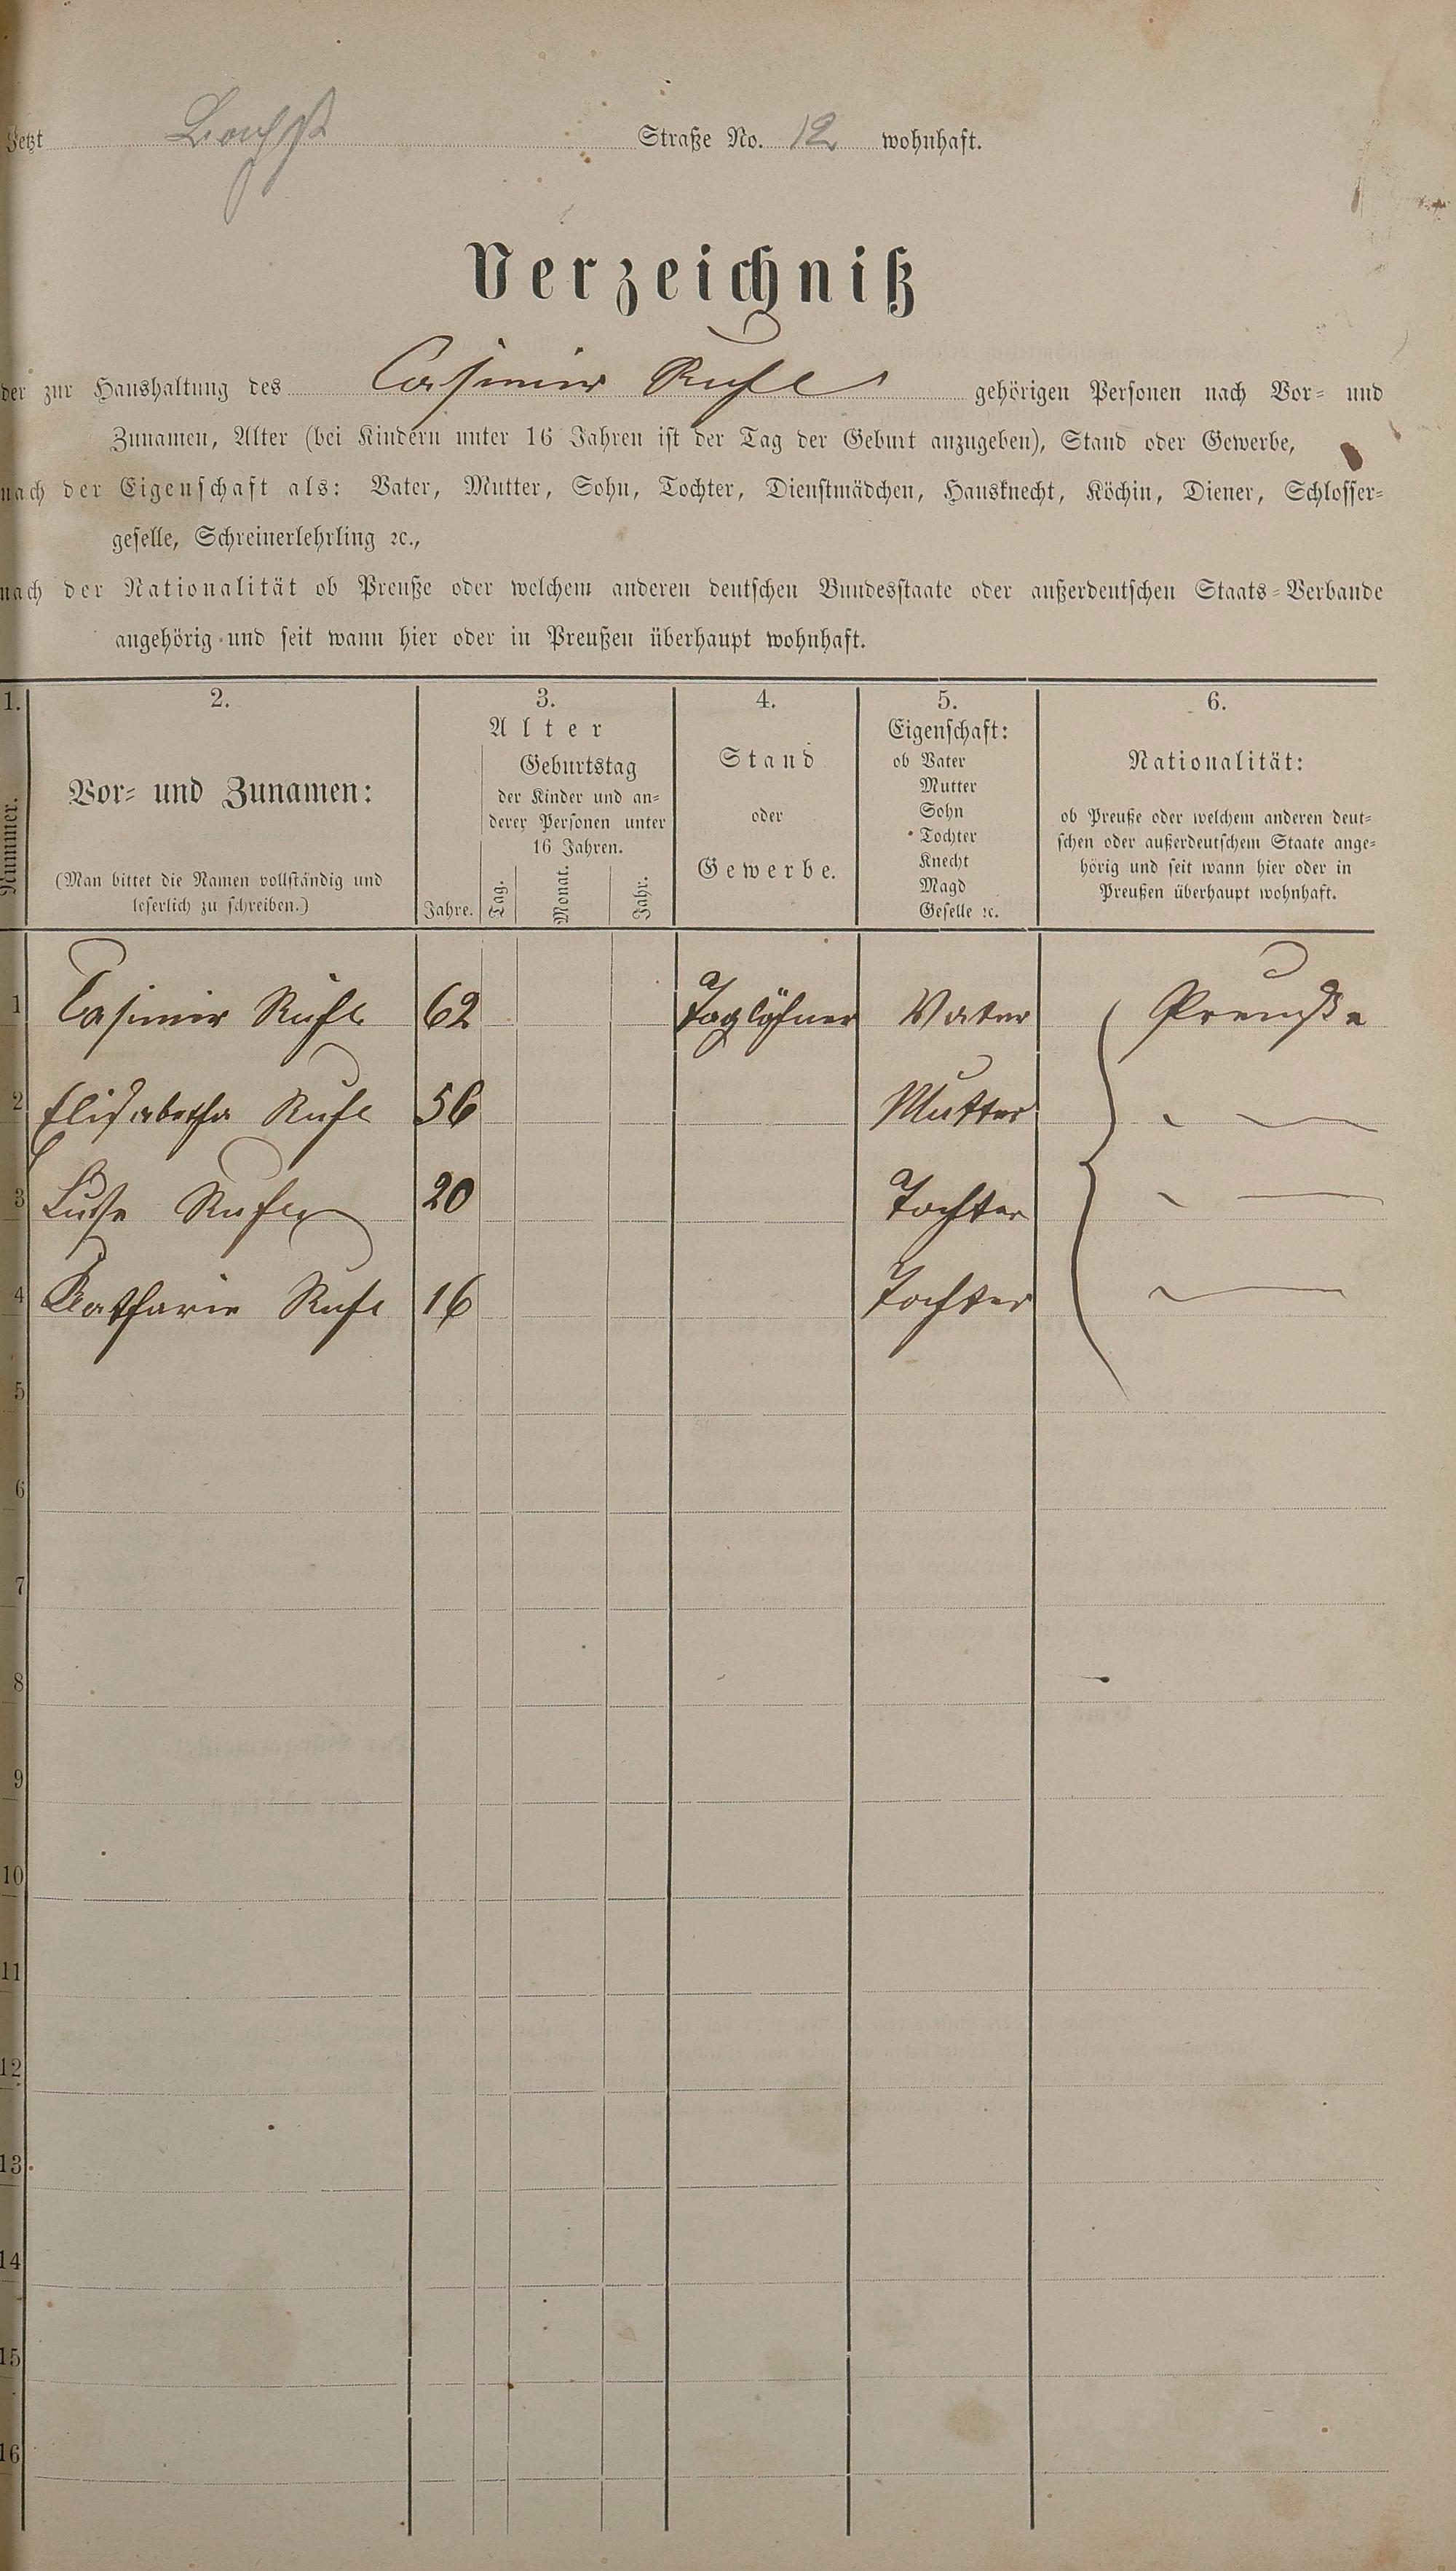 Jetzt Bachgß Straße No. 12 wohnhaft.
Verzeichniß
der zur Haushaltung des Casimir Ruhl gehörigen Personen nach Vor= und
Zunamen, Alter (bei Kindern unter 16 Jahren ist der Tag der Geburt anzugeben), Stand oder Gewerbe,
nach der Eigenschaft als: Vater, Mutter, Sohn, Tochter, Dienstmädchen, Hausknecht, Köchin, Diener, Schlosser=
geselle, Schreinerlehrling ꝛc.,
nach der Nationalität ob Preuße oder welchem anderen deutschen Bundesstaate oder außerdeutschen Staats=Verbande
angehörig und seit wann hier oder in Preußen überhaupt wohnhaft.
1. 2. 3. 4. 5. 6.
Nummer.
Vor= und Zunamen:
(Man bittet die Namen vollständig und
leserlich zu schreiben.)
Alter
Jahre.
Geburtstag
der Kinder und an=
derer Personen unter
16 Jahren.
Tag. Monat. Jahr.
Stand
oder
Gewerbe.
Eigenschaft:
ob Vater
Mutter
Sohn
Tochter
Knecht
Magd
Geselle ꝛc.
Nationalität:
ob Preuße oder welchem anderen deut=
schen oder außerdeutschem Staate ange=
hörig und seit wann hier oder in
Preußen überhaupt wohnhaft.
1 Casimir Ruhl 62 Taglöhner Vater Preuße
2 Elisabetha Ruhl 56 Mutter " —
3 Luise Ruhl 20 Tochter " —
4 Katharin Ruhl 16 Tochter —
5
6
7
8
9
10
11
12
13
14
15
16